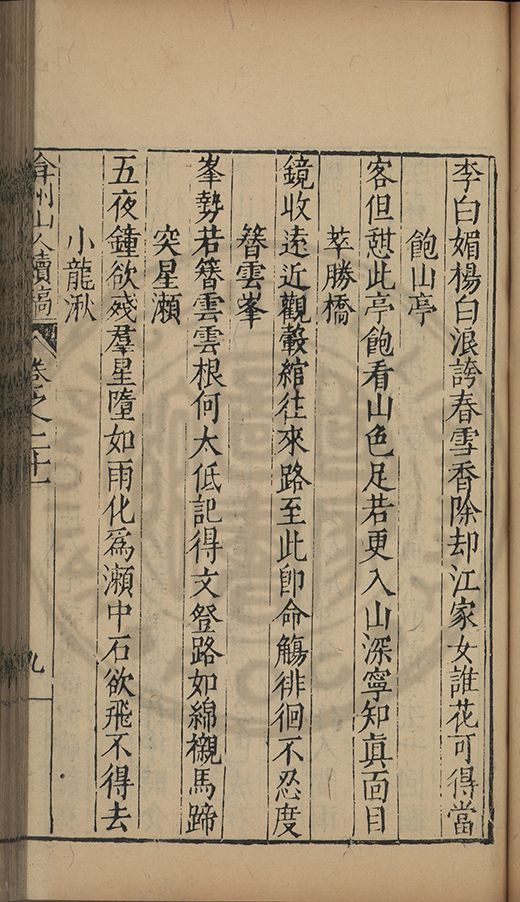 李白媚楊白浪誇春雪香除却江家女誰花可得當
飽山亭
客但憇此亭飽看山色足若更入山深寧知真面目
萃勝橋
鏡收遠近觀轂綰往來路至此卽命觴徘徊不忍度
簪雲峯
峯勢若簪雲雲根何太低記得文登路如綿襯馬蹄
突星瀬
五夜鐘欲殘羣星墮如雨化爲瀬中石欲飛不得去
小龍湫
弇州山人續稿
卷之二十一
九